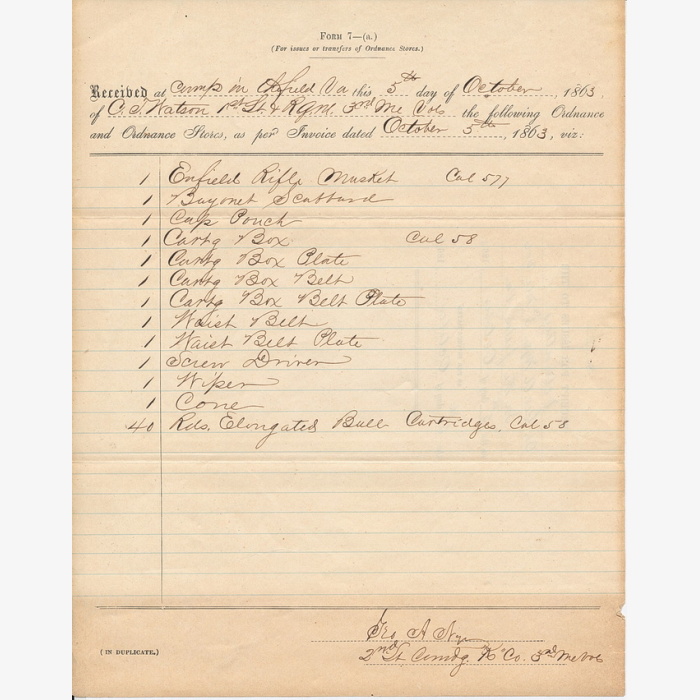 FORM 7—(a.)
(For issues or transfers of Ordnance Stores.)
Received at Camp in field Va this 5th day of October, 1863,
of C. S. Watson 1st Lt & R.Q.M. 3rd Me Vols the following Ordnance
and Ordnance Stores, as per Invoice dated October 5th, 1863, viz:
1 Enfield Rifle Musket Cal 577
1 Bayonet Scabbard
1 Cap Pouch
1 Cartg Box Cal 58
1 Cartg Box Plate
1 Cartg Box Belt
1 Cartg Box Belt Plate
1 Waist Belt
1 Waist Belt Plate
1 Screw Driver
1 Wiper
1 Cone
40 Rds. Elongated Ball Cartridges. Cal 58
Geo A Nye
(IN DUPLICATE.)
2nd Lt. Comdg "K" Co. 3rd Me Vols